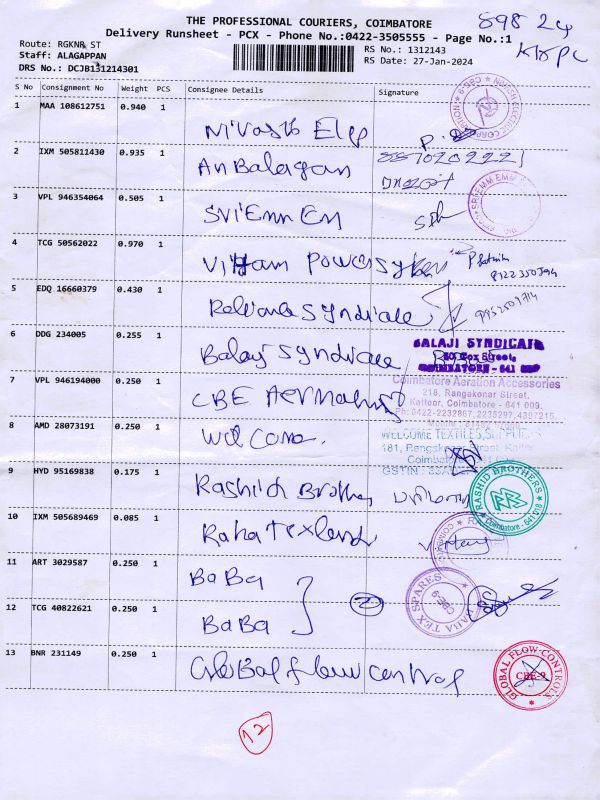 THE PROFESSIONAL COURIERS, COIMBATORE
898 24
Delivery Runsheet - PCX - Phone No.:0422-3505555 - Page No.:1
Route: RGKNR ST
RS No.: 1312143
Staff: ALAGAPPAN
RS Date: 27-Jan-2024
DRS No.: DCJB131214301
S No Consignment No Weight PCS Consignee Details Signature
1 MAA 108612751 0.940 1
Nivasth Elep
2 IXM 505811430 0.935 1
AnBalagan
3 VPL 946354064 0.505 1
SriEmm Em
4 TCG 50562022 0.970 1
Power System
5 EDQ 16660379 0.430 1
Reliance Syndicate
6 DDG 234005 0.255 1
Balaji Syndicate
BALAJI SYNDICATE
COIMBATORE - 641
7 VPL 946194000 0.250 1
CBE
Coimbatore Aeration Accessories
218, Rangakonar Street,
Kattoor, Coimbatore - 641 009.
Ph: 0422-2232867, 2235297, 4397215
8 AMD 28073191 0.250 1
Welcome.
WELCOME TEXTILES
181, Rengakonar Street
GSTIN
9 HYD 95169838 0.175 1
Rashid Brothers
RASHID BROTHERS
RB
Coimbatore
10 IXM 505689469 0.085 1
Raha Texland
11 ART 3029587 0.250 1
BaBa
TEX SPARES
12 TCG 40822621 0.250 1
BaBa
2
13 BNR 231149 0.250 1
Global flow control
GLOBAL FLOW-CONTROLS
CBE-9
12